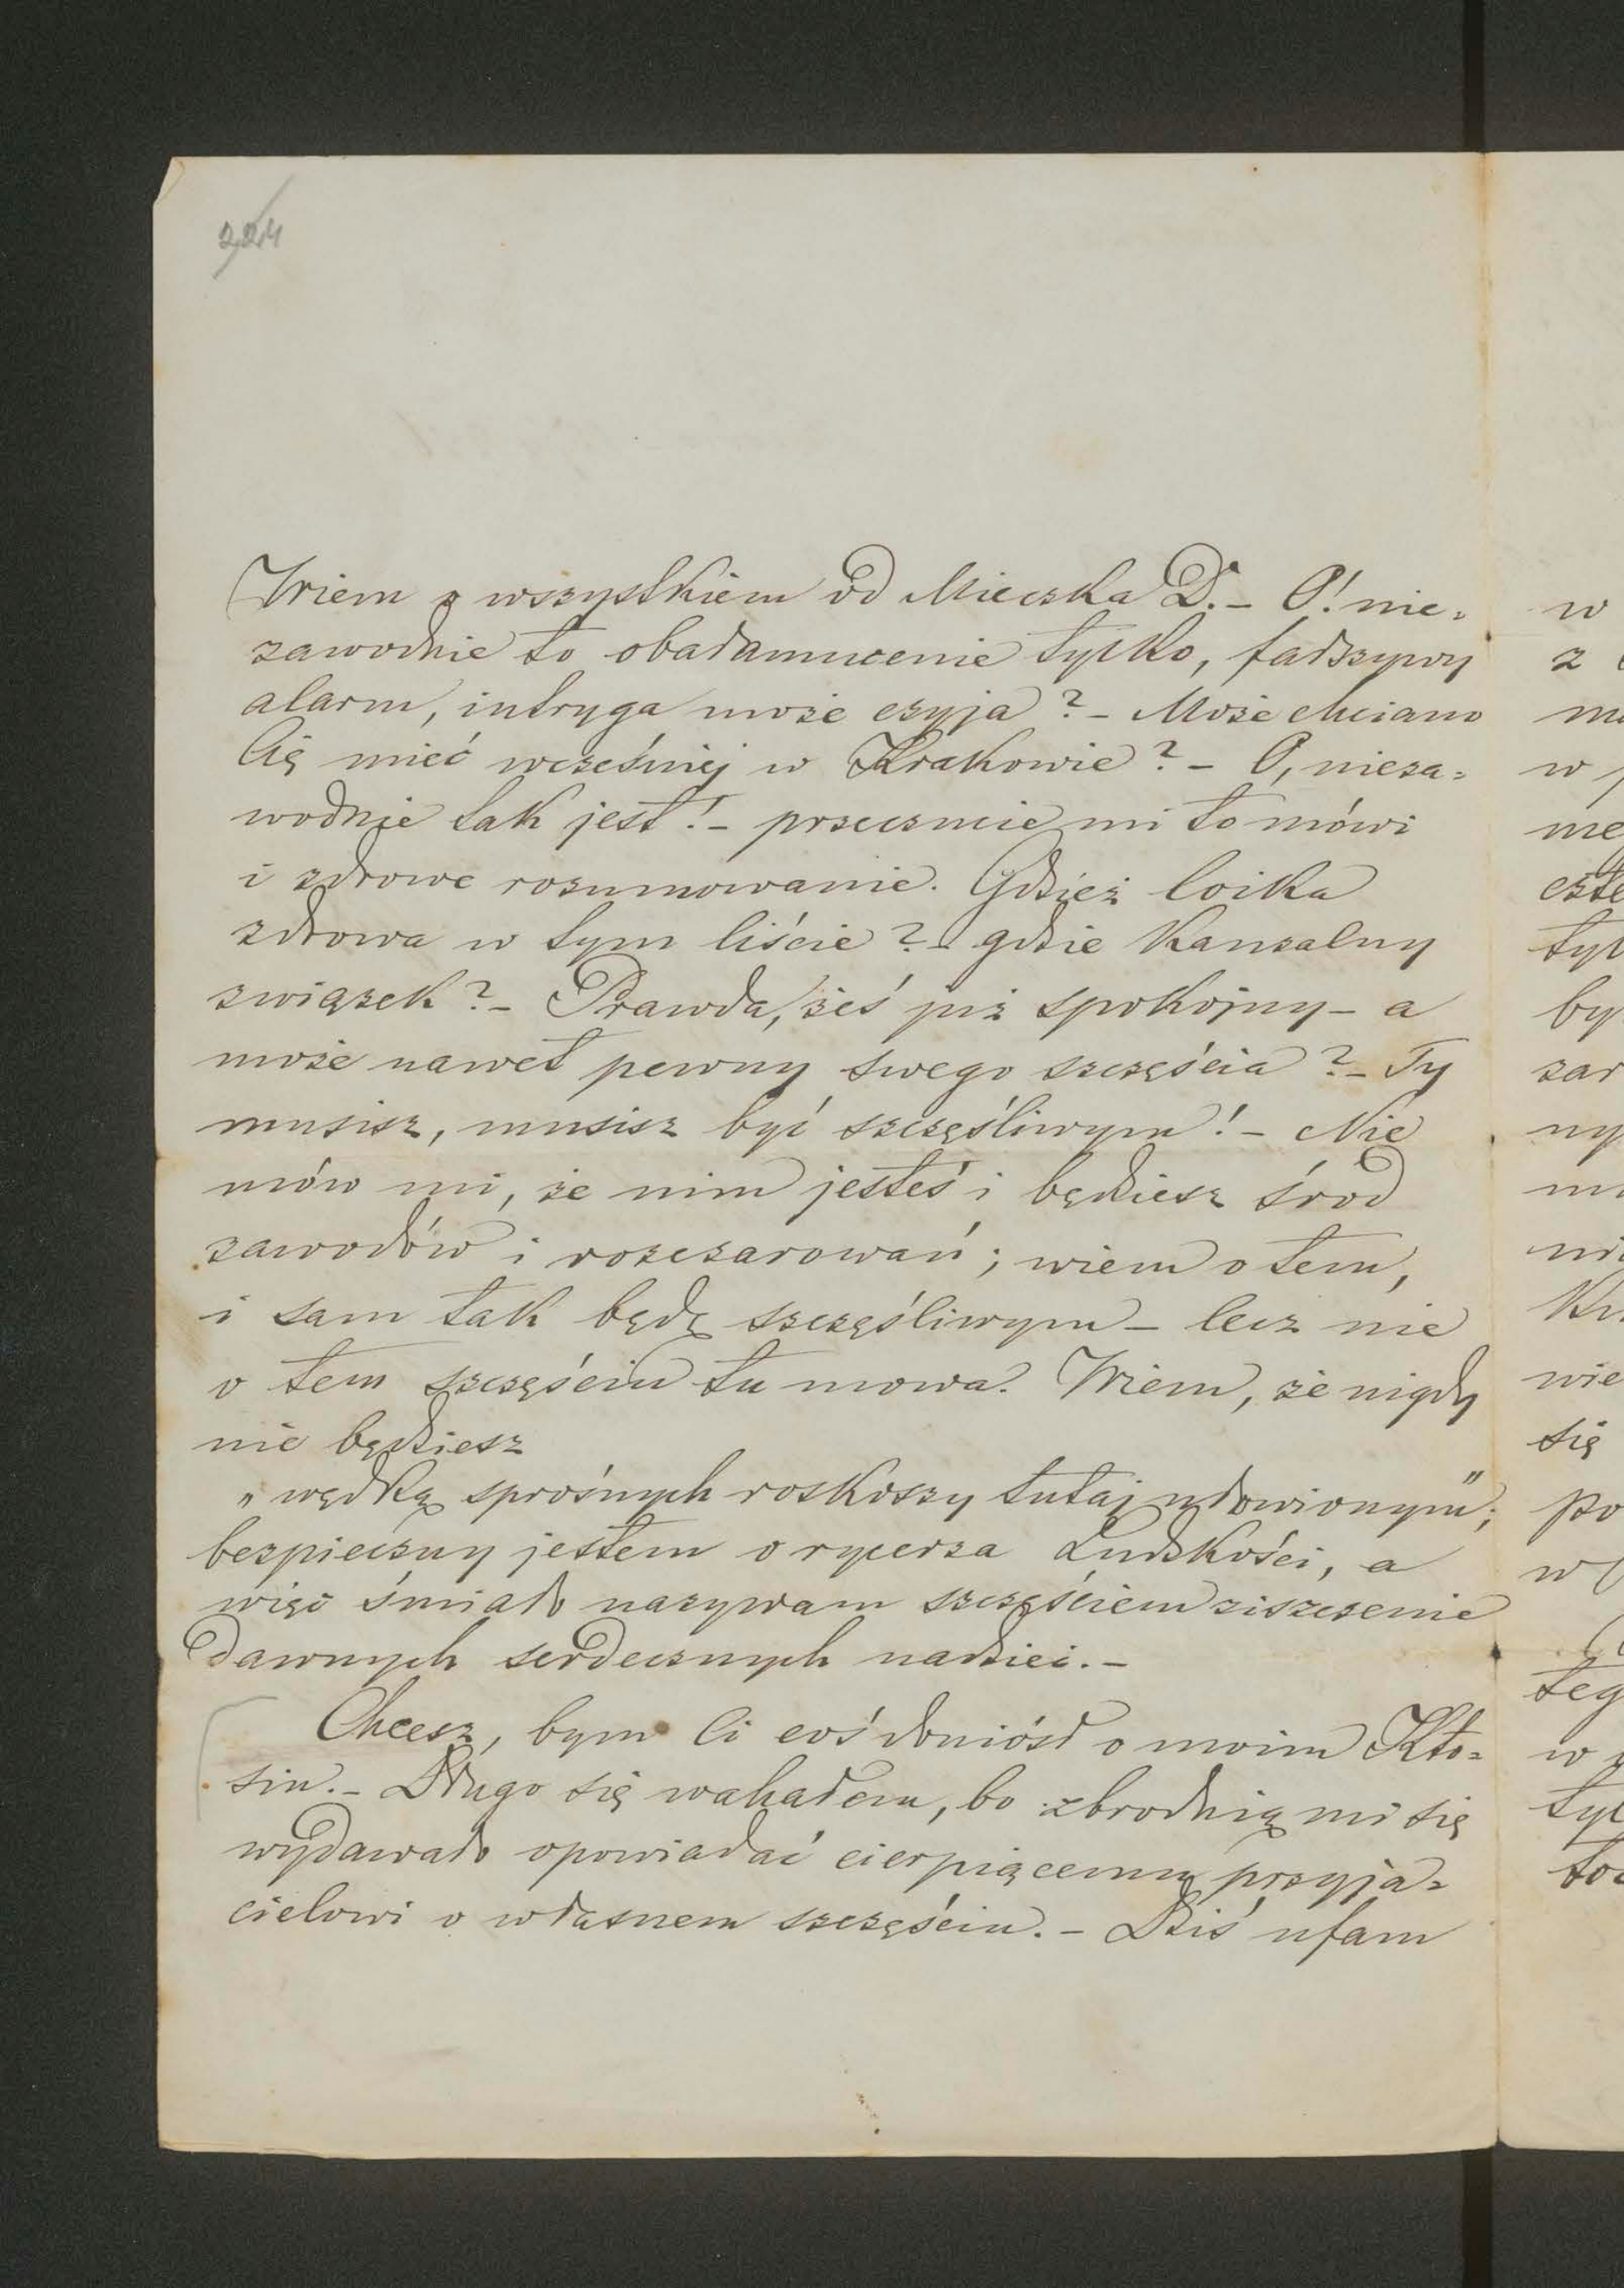 224
Wiem o wszystkiem od Mieczka D. – O! nie=
zawodnie to obałamucenie tylko, fałszywy
alarm, intryga może czyja? – Może chciano
Cię mieć wcześniej w Krakowie? – O, nieza=
wodnie tak jest! – przeczucie mi to mówi
i zdrowe rozumowanie. Gdzież loika
zdrowa w tym liście? – gdzie kauzalny
związek? – Prawda, żeś już spokojny – a
może nawet pewny swego szczęścia? – Ty
musisz, musisz być szczęśliwym! – Nie
mów mi, że nim jesteś i będziesz śród
zawodów i rozczarowań; wiem o tem,
i sam tak będę szczęśliwym – lecz nie
o tem szczęściu tu mowa. Wiem, że nigdy
nie będziesz
„wędką sprośnych roskoszy tutaj ułowionym";
bezpieczny jestem o rycerza Ludzkości, a
więc śmiało nazywam szczęściem ziszczenie
dawnych serdecznych nadziei. –
Chcesz, bym Ci coś doniósł o moim Kło=
siu. – Długo się wahałem, bo zbrodnią mi się
wydawało opowiadać cierpiącemu przyja=
cielowi o własnem szczęściu. – Dziś ufam
w
z
w
by
zar
ny
wie
się
po
w
teg
w